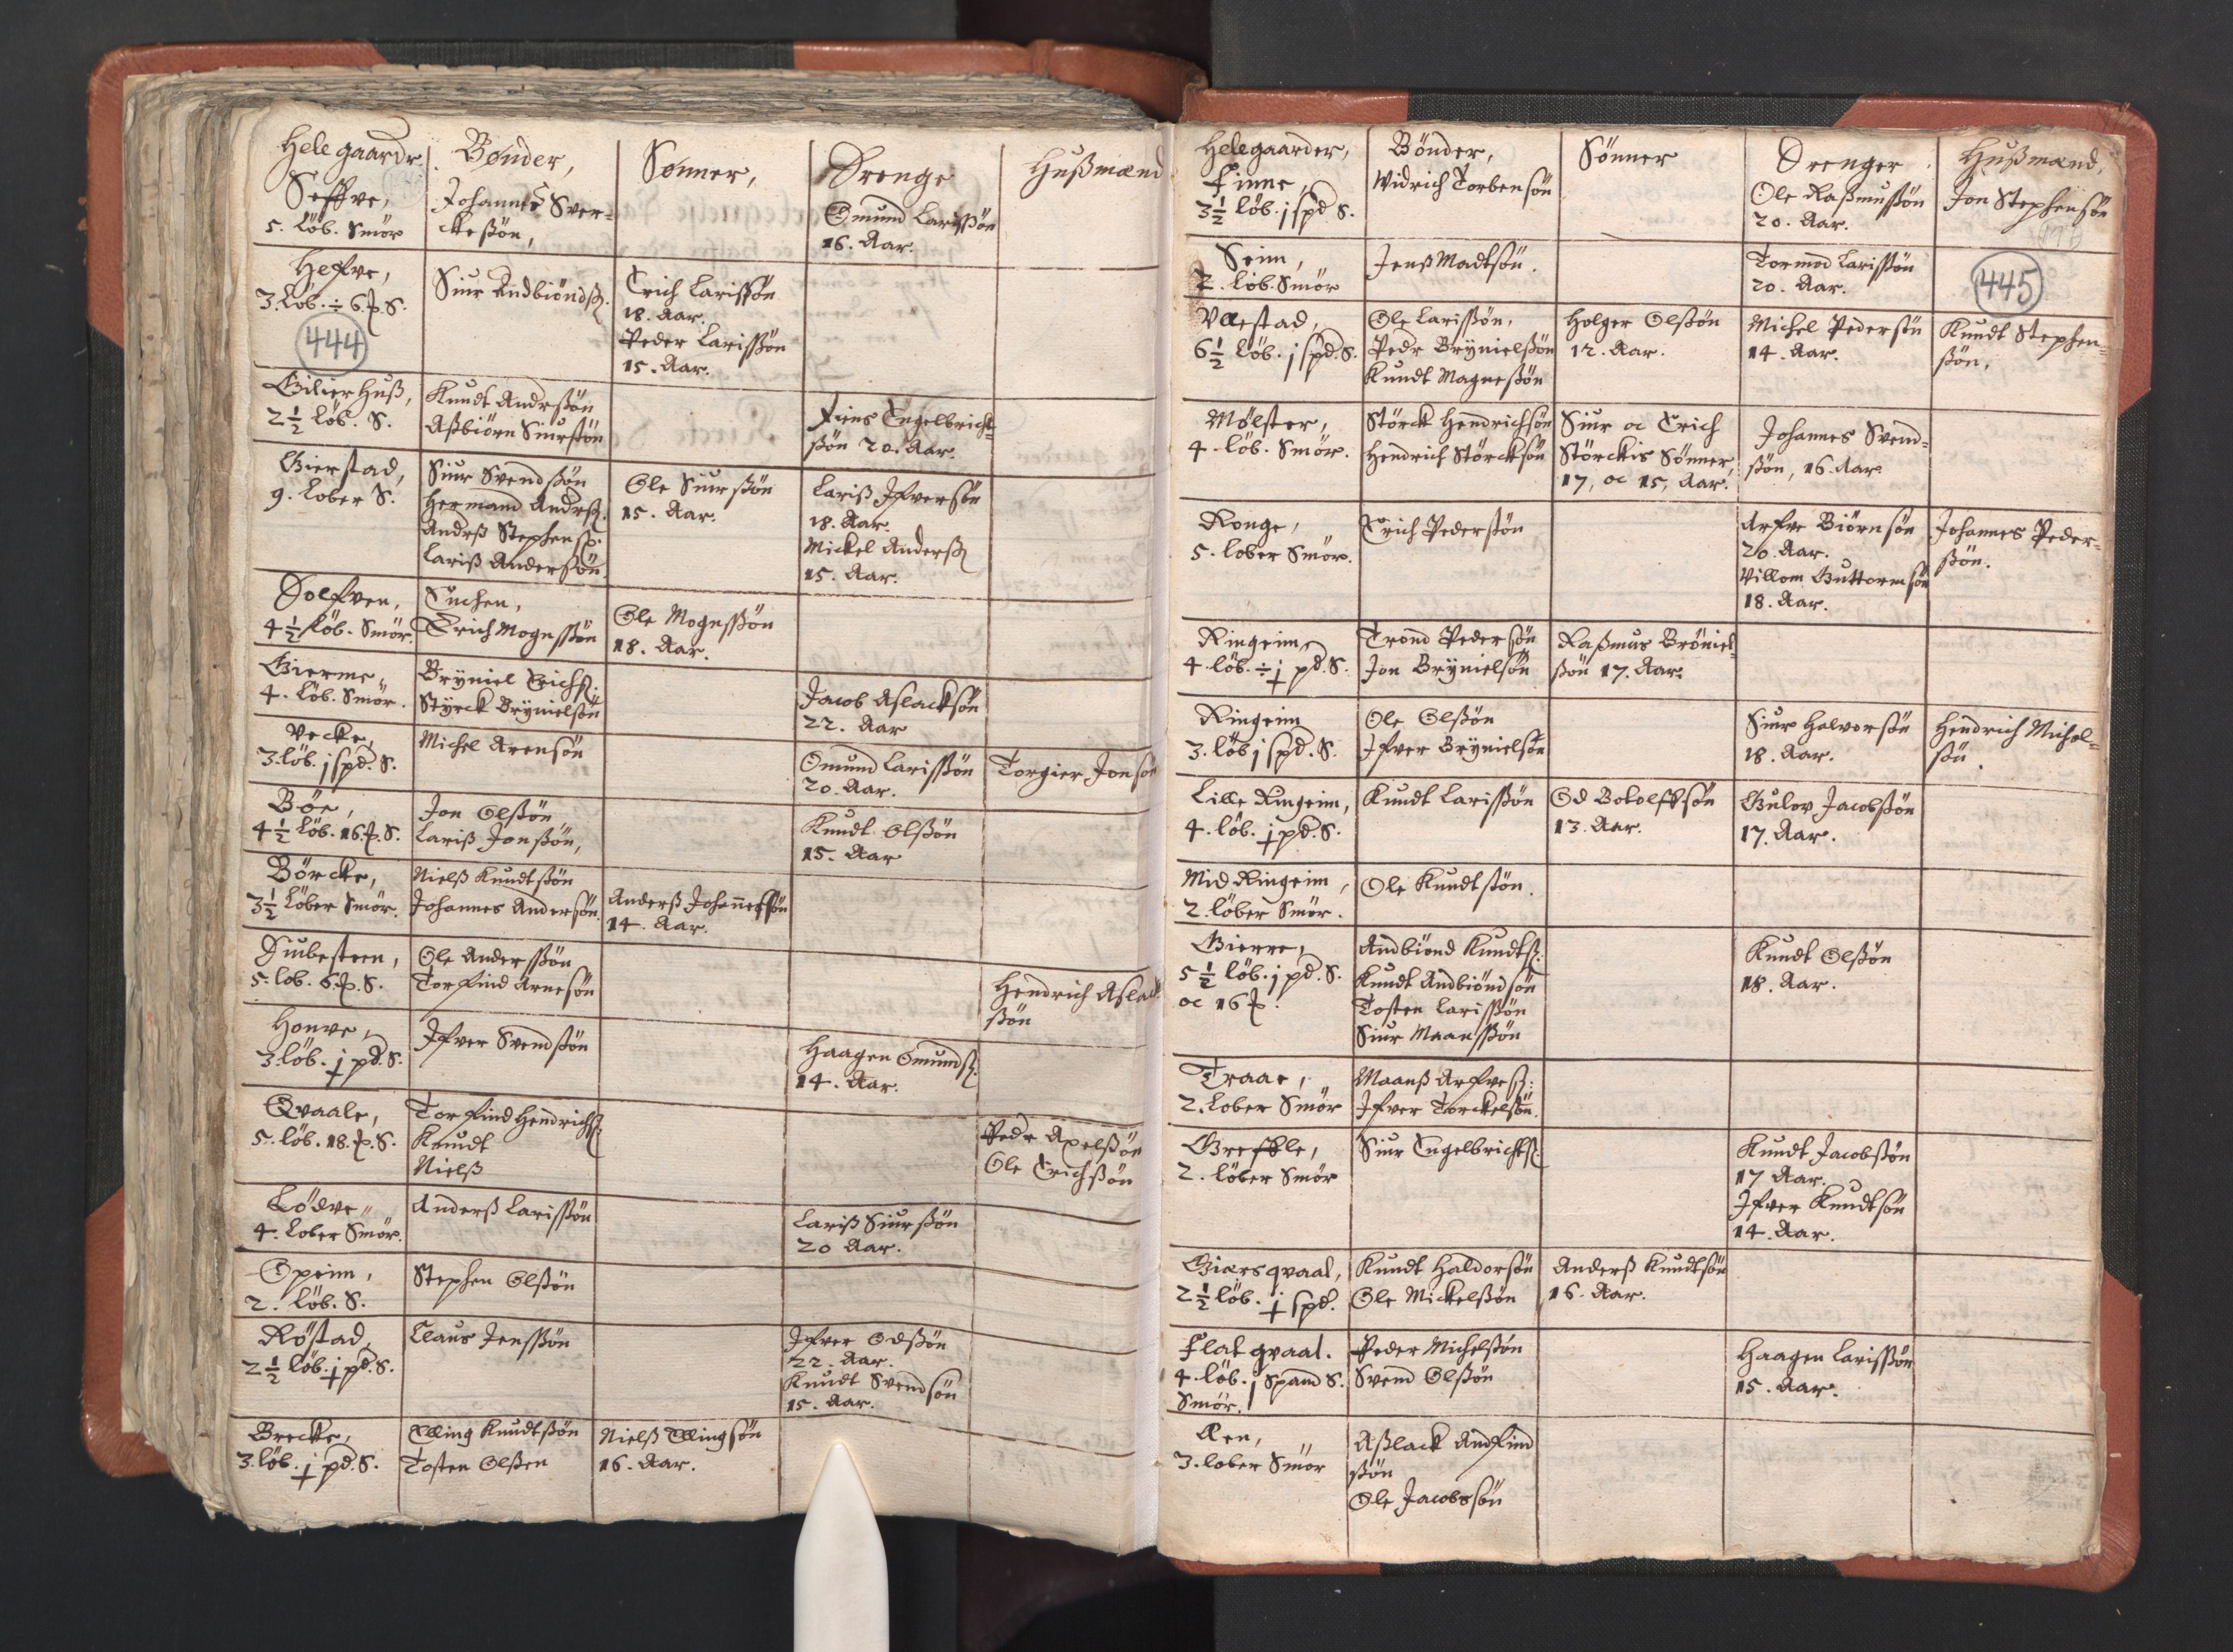 Hele gaardr.
Bønder,
Sønner,
Drenge
Hußmænd
Seffve,
5. löb. Smör
Johannes Sver-
ckeßön,
Omund Larißön
16. Aar.
Hefve,
3. löb. ÷ 6. S.
444
Siur Andbiöndß.
Erich Larißön
18. Aar.
Peder Larißön
15. Aar.
Gilierhuß,
2½ löb. S.
Knudt Andrßön
Aßbiörn Siurßön
Engelbricht-
ßön 20. Aar.
Gierstad,
9. lober S.
Siur Svendßön
Hermand Andrß.
Andrß Stephenß.
Lariß Anderßön
Ole Siurßön
15. Aar.
Lariß Jfversön
18. Aar.
Mickel Anderß
15. Aar.
Dolfven,
4½ löb. Smör.
Enchen,
Erich Mognßön
Ole Mognßön
18. Aar.
Gierme,
4. löb. Smör.
Bryniel Erichß.
Styrck Brynielsön
Jacob Aslacksön
22. Aar
Vecke,
3. löb. j spd. S.
Michel Arensön
Omund Larißön
20. Aar.
Torgier Jonsön
Böe,
4½ löb. 16. S.
Jon Olßön
Lariß Jonßön,
Knudt Olßön
15. Aar
Börcke,
3½ löber Smör.
Nielß Knudtßön
Johannes Andersön.
Anderß Johannesßön
14. Aar.
Dubesteen,
5. lob. 6. S.
Ole Anderßön
Torfind Arnesön
Hendrich Aslack
ßön
Honve,
3. löb. j pd. S.
Jfver Svendßön
Haagen Omundß.
14. Aar.
Qvaale,
5. löb. 18. S.
Torfind Hendrichß.
Knudt
Nielß
Pedr Axelßön
Ole Erichßön
Lödve,
4. lober Smör.
Anderß Larißön
Lariß Siurßön
20 Aar.
Opeim,
2. löb. S.
Stephen Olßön
Röstad,
2½ löb. j pd. S.
Claus Jenßön
Jfver Odßön
22. Aar.
Knudt Svendsön
15. Aar.
Brecke,
3. löb. j pd. S.
Elling Knudtßön
Tosten Olßen
Nielß Ellingsön
16. Aar.
Helegaarder,
Bönder,
Sönner
Drenger
Hußmænd,
Finne,
3½ löb. j spd S.
Widrich Torbensön
Ole Raßmußön
20. Aar.
Jon Stephensön
Seim,
2. löb. Smör
Jenß Madtsön.
Tormod Larißön
20. Aar.
445
Væstad,
6½ löb. j spd. S.
Ole Larißön,
Pedr Brynielßön
Knudt Magneßön
Holger Olßön
12. Aar.
Michel Pedersön
14. Aar.
Knudt Stephen-
ßön.
Mölster,
4. löb. Smör.
Störck Hendrichsön
Hendrich Störcksön
Siur oc Erich
Störckis Sönner,
17, oc 15, Aar.
Johannes Svend-
ßön, 16. Aar.
Ronge,
5. lober Smör.
Erich Pederßön
Arfve Biörnsön
20. Aar.
Villom Guttormsön
18. Aar.
Johannes Peder-
ßön.
Ringeim,
4. löb. ÷ j pd. S.
Trond Pedersön
Jon Brynielsön
Raßmus Bröniel-
ßön 17. Aar.
Ringeim
3. löb j spd. S.
Ole Olßön
Jfver Brynielsön
Siur Halvorsön
18. Aar.
Hendrich Michel-
sön.
Lille Ringeim,
4. löb. j pd. S.
Knudt Larißön
Od Botolffsön
13. Aar.
Gulov Jacobßön
17. Aar.
Mid Ringeim,
2. löber Smör.
Ole Knudtßön.
Gierre,
5½ löb. j pd. S.
oc 16
Andbiönd Knudtß.
Knudt Andbiöndsön
Tosten Larißön
Siur Maanßön
Knudt Olßön
18. Aar.
Traae,
2. lober Smör
Maanß Arfveß:
Jfver Torckelsön.
Greffle,
2. löber Smör
Siur Engelbrichtß.
Knudt Jacobßön
17 Aar.
Jfver Knudtsön
14. Aar.
Giersqvaal,
2½ löb. j spd.
Knudt Haldorsön
Ole Mickelßön
Anderß Knudtsön
16. Aar.
Flatqvaal.
4. löb. j Spand S.
Smör.
Peder Michelßön
Svend Olßön
Haagen Larißön
15. Aar.
Ren,
3. lober Smör
Aßlack Andfind
ßön
Ole Jacobssön